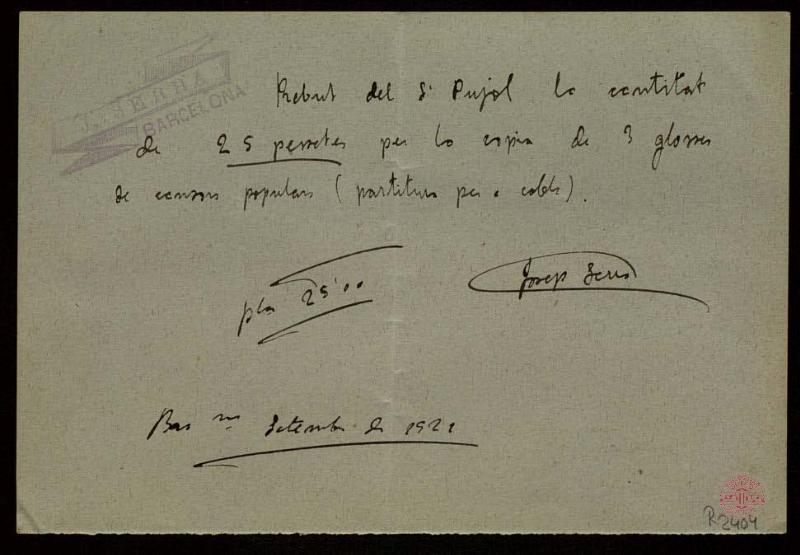 J. SERRA
BARCELONA
Rebut del Sr Pujol la cantitat
de 25 pessetes per la copia de 3 glosses
de cansons populars (partitura per a cobla).
pta 25'00
Josep Serra
Bar na Setembre de 1921
R2404